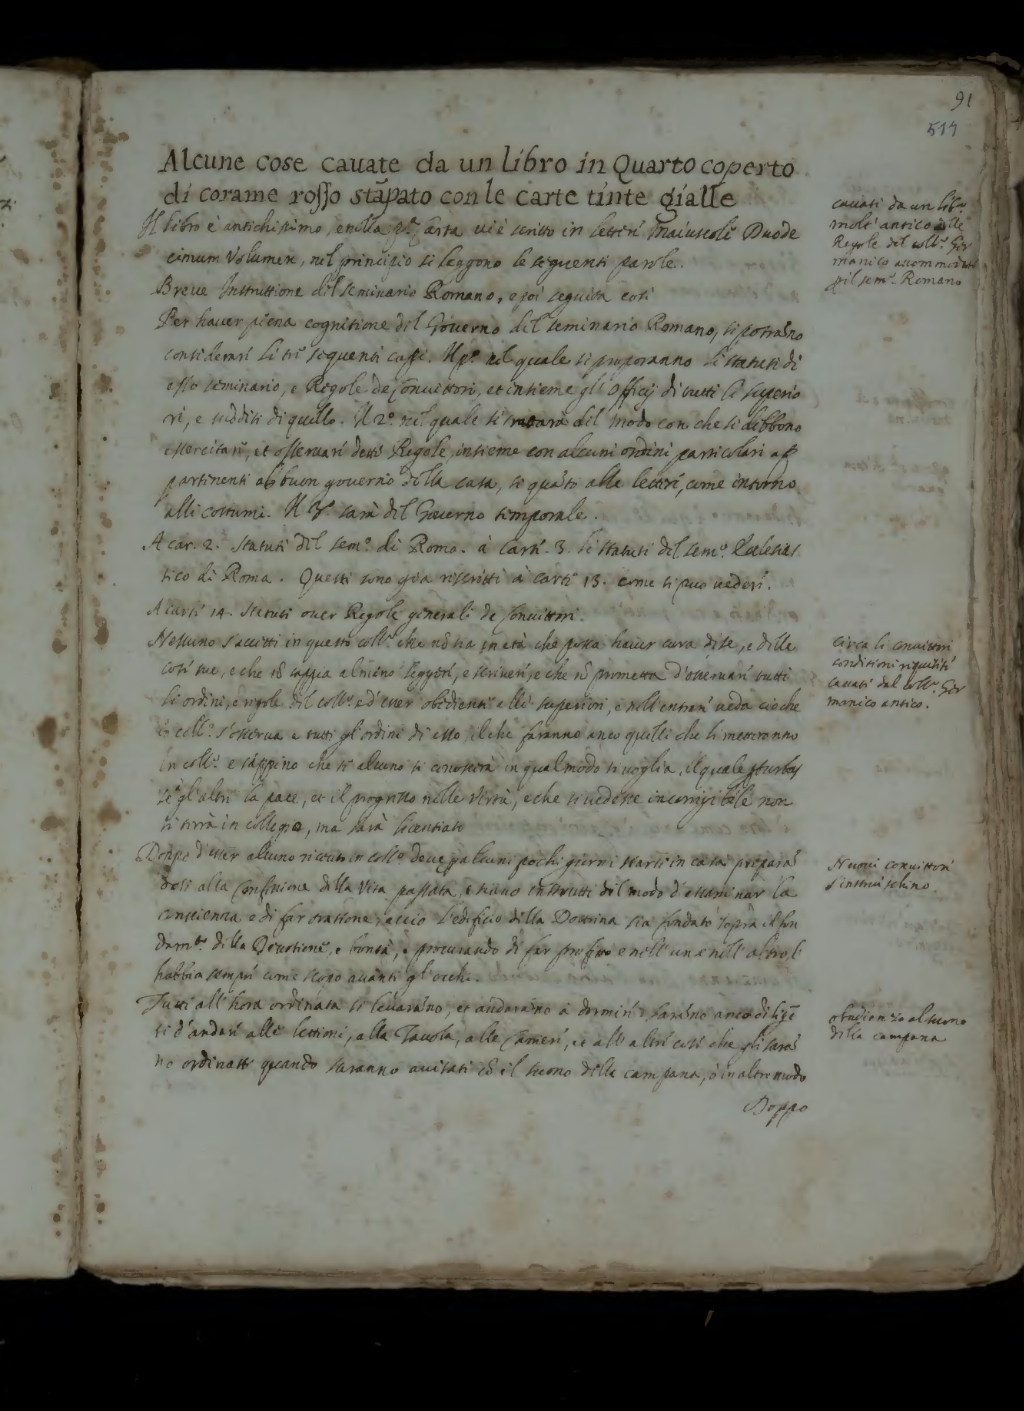 91
517
Alcune cose cauate da un libro in Quarto coperto
di corame rosso stãpato con le carte tinte gialle
Il libro è antichissimo, nella pª carta ui è scritto in lettere maiuscole Duode
cimum Volumen, nel principio si leggono le seguenti parole.
Breue Instruttione del seminario Romano, e poi seguita così
Per hauer piena cognitione del Gouerno del seminario Romano, si potrãno
considerare li tre seguenti capi. Il pº nel quale si proporanno li statuti di
esso seminario, e Regole de Conuittori, et insieme gl'Officij di tutti li superio
ri, e sudditi di quello. Il 2º nel quale si trattarà del modo con che si debbono
essercitare, et osseruare dette Regole, insieme con alcuni ordini particolari ap
partinenti al buon gouerno della casa, sì quãto alle lettere, come intorno
alli costumi. Il 3º sarà del Gouerno temporale.
A car. 2. statuti del semº di Roma. à carte 3. li statuti del semº Ecclesias
tico di Roma. Questi sono già riscritti à carte 13. come si può uedere.
A carte 14. statuti ouer Regole generali de Conuittori.
Nessuno s'accetti in questo collº che nõ sia in età che possa hauer cura di se, e delle
cose sue, e che nõ sappia almeno leggere, e scriuere, e che nõ prometta d'osseruare tutti
li ordini, e regole del collº ed'esser obediente alli superiori, e nell'entrare ueda ciò che
in collº s'osserua e tutti gl'ordini di esso, il che faranno anco quelli che li metteronno
in collº e sãppino che se alcuno si conoscerà in qual modo si uoglia, il quale pturbas
se gl'altri la pace, et il progresso nelle Virtù, e che si uedesse incorrigibile non
si terrà in collegio, ma sarà licentiato
Doppo d'esser alcuno riceuto in collº deue p alcuni pochi giorni starsi in casa preparãd
dosi alla Confessione della Vita passata, e siano instrutti del modo d'essaminar la
conscienza, e di far oratione, acciò l'edificio della Dottrina sia fondato sopra il fon
damtº della Deuotione, e bontà, e procurando di far profitto e nell'un e nell'altro, l'
habbia sempre come scopo auanti gl'occhi.
Tutti all'hora ordinata si leuarãno, et andarãno à dormire, sarãno anco diligẽ
ti d'andare alle lettioni, alla Tauola, alle Camere, et all'altre cose che gli sarã
no ordinate quando saranno auisati cõ il suono della campana, ò in altro modo
Doppo
cauati da un libº
molto antico delle
Regole del collº Ger
manico accommodate
p il semº Romano
circa li conuittori
conditioni requisite
cauate dal collº Ger
manico antico.
Nuoui conuittori
s'instruischino.
obedienza al suono
della campana